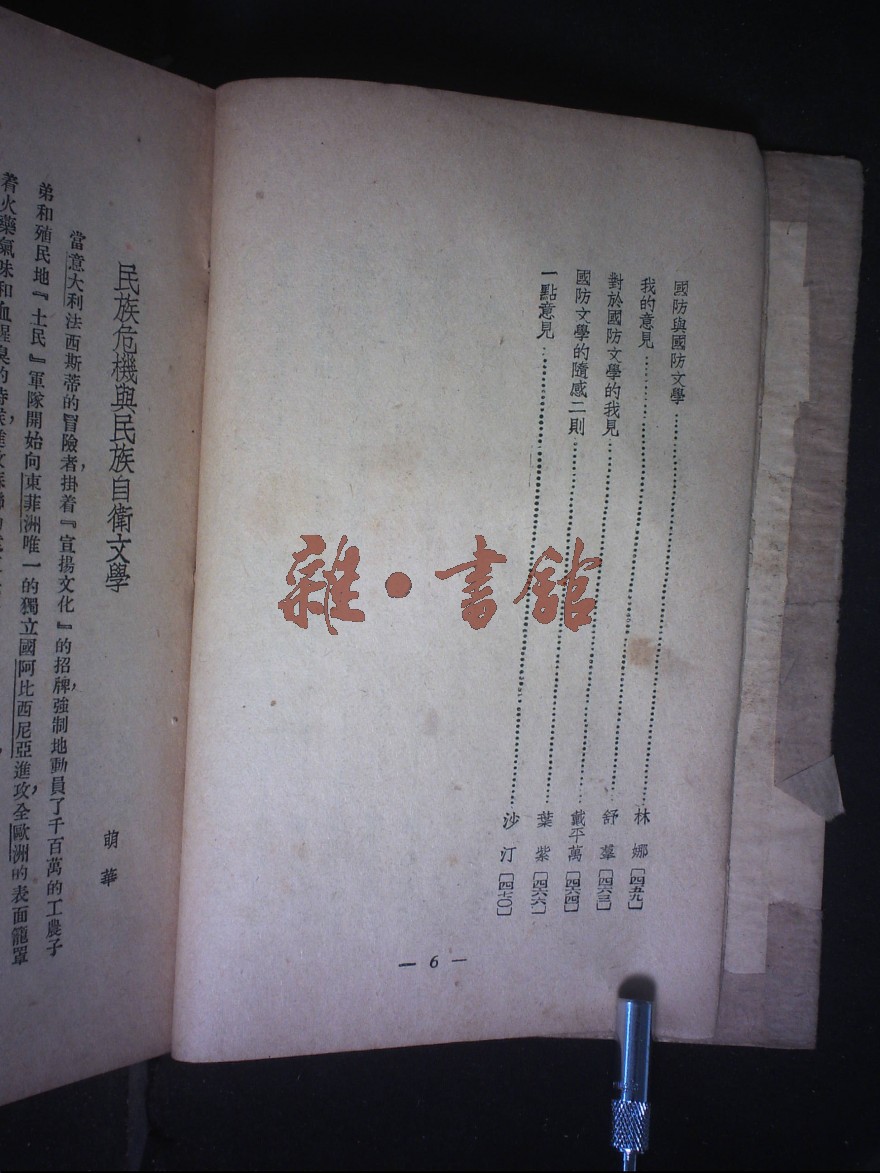 國防與國防文學……林　娜〔四五九〕
我的意見……舒　羣〔四六三〕
對於國防文學的我見……戴平萬〔四六四〕
國防文學的隨感二則……葉　紫〔四六六〕
一點意見……沙　汀〔四七〇〕
— 6 —
雜・書館
民族危機與民族自衛文學
萌　華
當意大利法西斯蒂的冒險者，掛着『宣揚文化』的招牌，強制地動員了千百萬的工農子
弟和殖民地『土民』軍隊開始向東菲洲唯一的獨立國阿比西尼亞進攻，全歐洲的表面籠罩
着火藥氣味和血腥臭的時候，